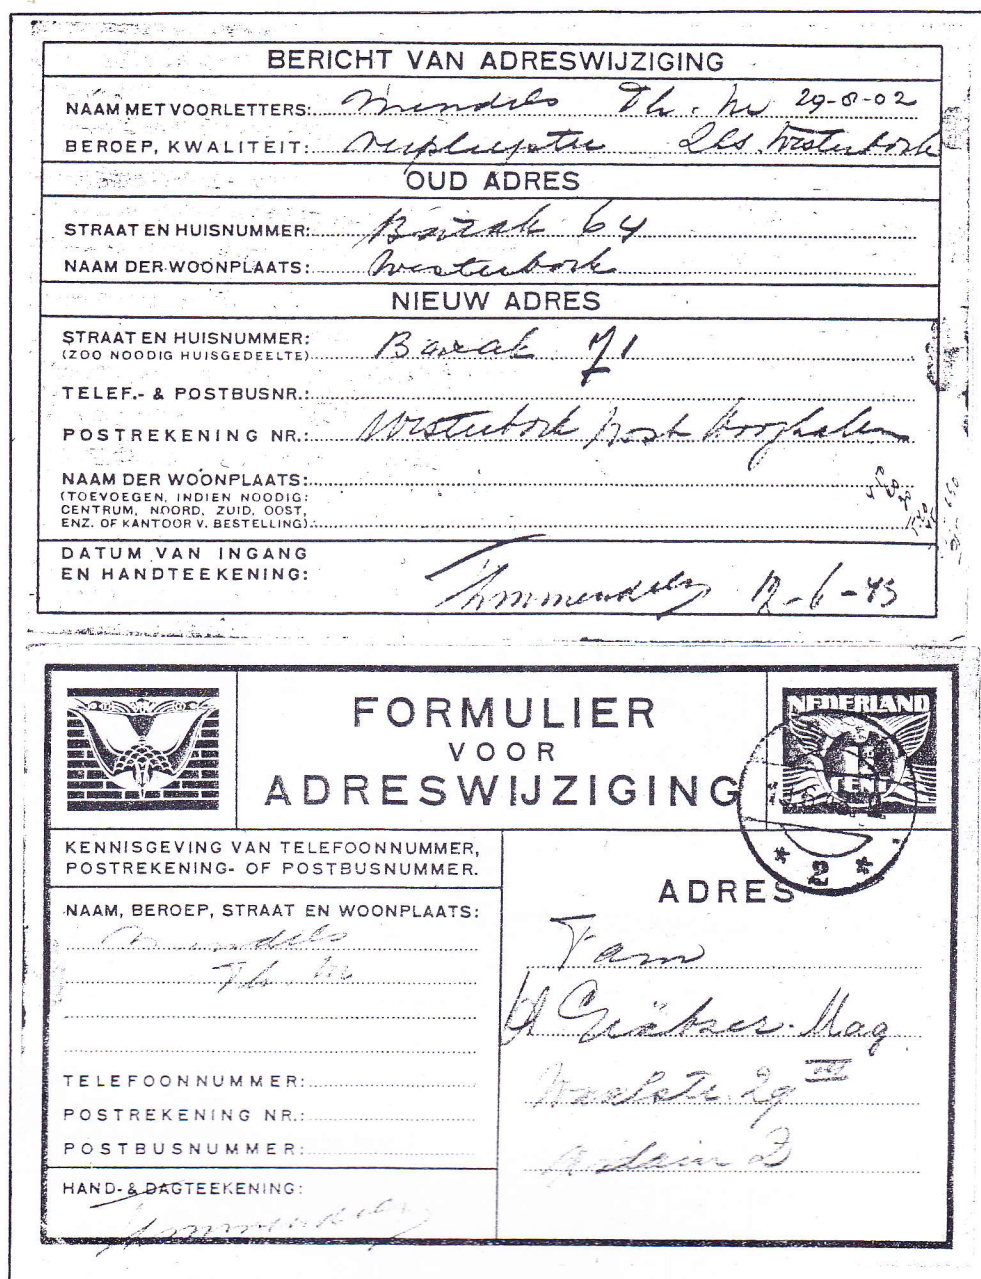 BERICHT VAN ADRESWIJZIGING
NAAM MET VOORLETTERS: Mendels Th. M 29-8-02
BEROEP, KWALITEIT: verpleegster Westerbork
OUD ADRES
STRAAT EN HUISNUMMER: Barak 64
NAAM DER WOONPLAATS: Westerbork
NIEUW ADRES
STRAAT EN HUISNUMMER: Barak 71
(ZOO NOODIG HUISGEDEELTE)
TELEF.- & POSTBUSNR.:
POSTREKENING NR.: Westerbork post Hooghalen
NAAM DER WOONPLAATS:
(TOEVOEGEN, INDIEN NOODIG:
CENTRUM, NOORD, ZUID, OOST,
ENZ. OF KANTOOR V. BESTELLING)
DATUM VAN INGANG
EN HANDTEEKENING: ThMMendels 12-6-43
FORMULIER
VOOR
ADRESWIJZIGING
NEDERLAND
CENT
2
KENNISGEVING VAN TELEFOONNUMMER,
POSTREKENING- OF POSTBUSNUMMER.
NAAM, BEROEP, STRAAT EN WOONPLAATS:
Mendels
Th. M
TELEFOONNUMMER:
POSTREKENING NR.:
POSTBUSNUMMER:
HAND- & DAGTEEKENING:
ThMMendels
ADRES
Fam
Mag
29 III
Z